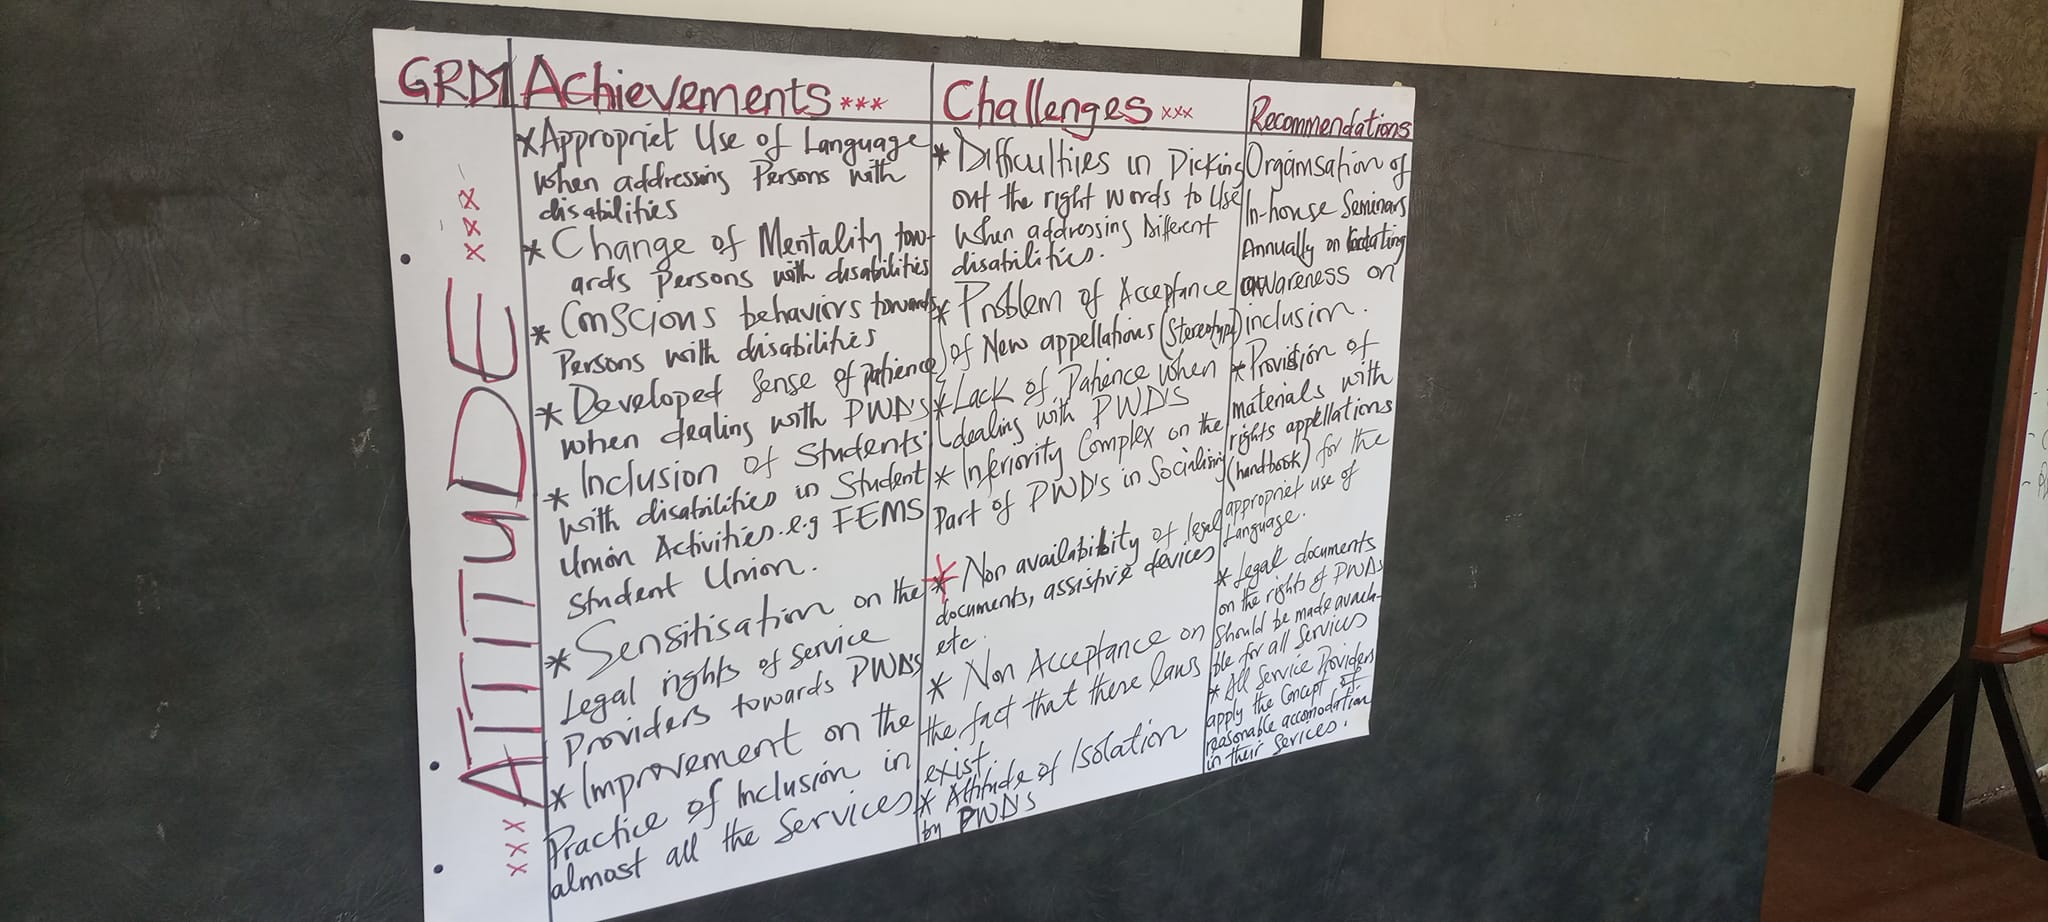 GRDM
ATTITUDE
Achievements ***
*Appropriet Use of Language
when addressing Persons with
disabilities
* Change of Mentality tow-
ards Persons with disabilities
* Conscious behaviors towards
Persons with disabilities
* Developed Sense of patience
when dealing with PWD'S
* Inclusion of Students
with disabilities in Student
Union Activities. e.g FEMS
Student Union.
* Sensitisation on the
Legal rights of Service
Providers towards PWD's
* Improvement on the
Practice of Inclusion in
almost all the Services
Challenges xxx
* Difficulties in Picking
out the right words to Use
when addressing Different
disabilities.
* Problem of Acceptance
of New appellations (Stereotype)
* Lack of Patience when
dealing with PWD'S
* Inferiority Complex on the
Part of PWD's in Socialising
* Non availability of legal
documents, assistive devices
etc.
* Non Acceptance on
the fact that there laws
exist.
* Attitude of Isolation
by PWD's
Recommendations
Organisation of
In-house Seminars
Annually on
awareness on
inclusion.
* Provision of
materials with
rights appellations
(handbook) for the
appropriet use of
Language.
* Legal documents
on the rights of PWDs
Should be made availa-
ble for all Services
* All Service Providers
apply the Concept of
reasonable accomodation
in their Services.